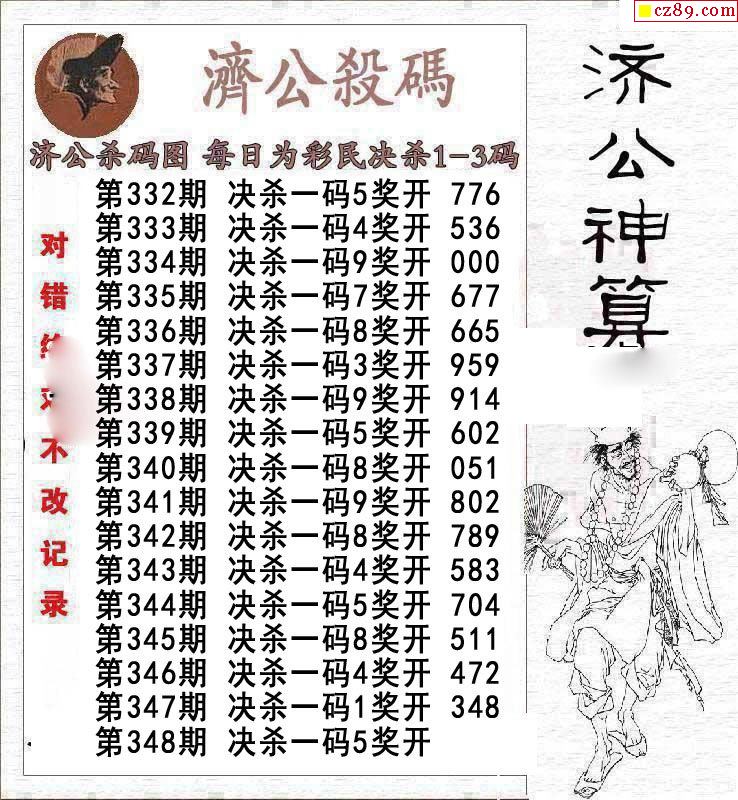 cz89.com
濟公殺碼
济公杀码图 每日为彩民决杀1-3码
第332期 决杀一码5奖开 776
第333期 决杀一码4奖开 536
第334期 决杀一码9奖开 000
第335期 决杀一码7奖开 677
第336期 决杀一码8奖开 665
第337期 决杀一码3奖开 959
第338期 决杀一码9奖开 914
第339期 决杀一码5奖开 602
第340期 决杀一码8奖开 051
第341期 决杀一码9奖开 802
第342期 决杀一码8奖开 789
第343期 决杀一码4奖开 583
第344期 决杀一码5奖开 704
第345期 决杀一码8奖开 511
第346期 决杀一码4奖开 472
第347期 决杀一码1奖开 348
第348期 决杀一码5奖开
对错
不改记录
济公神算